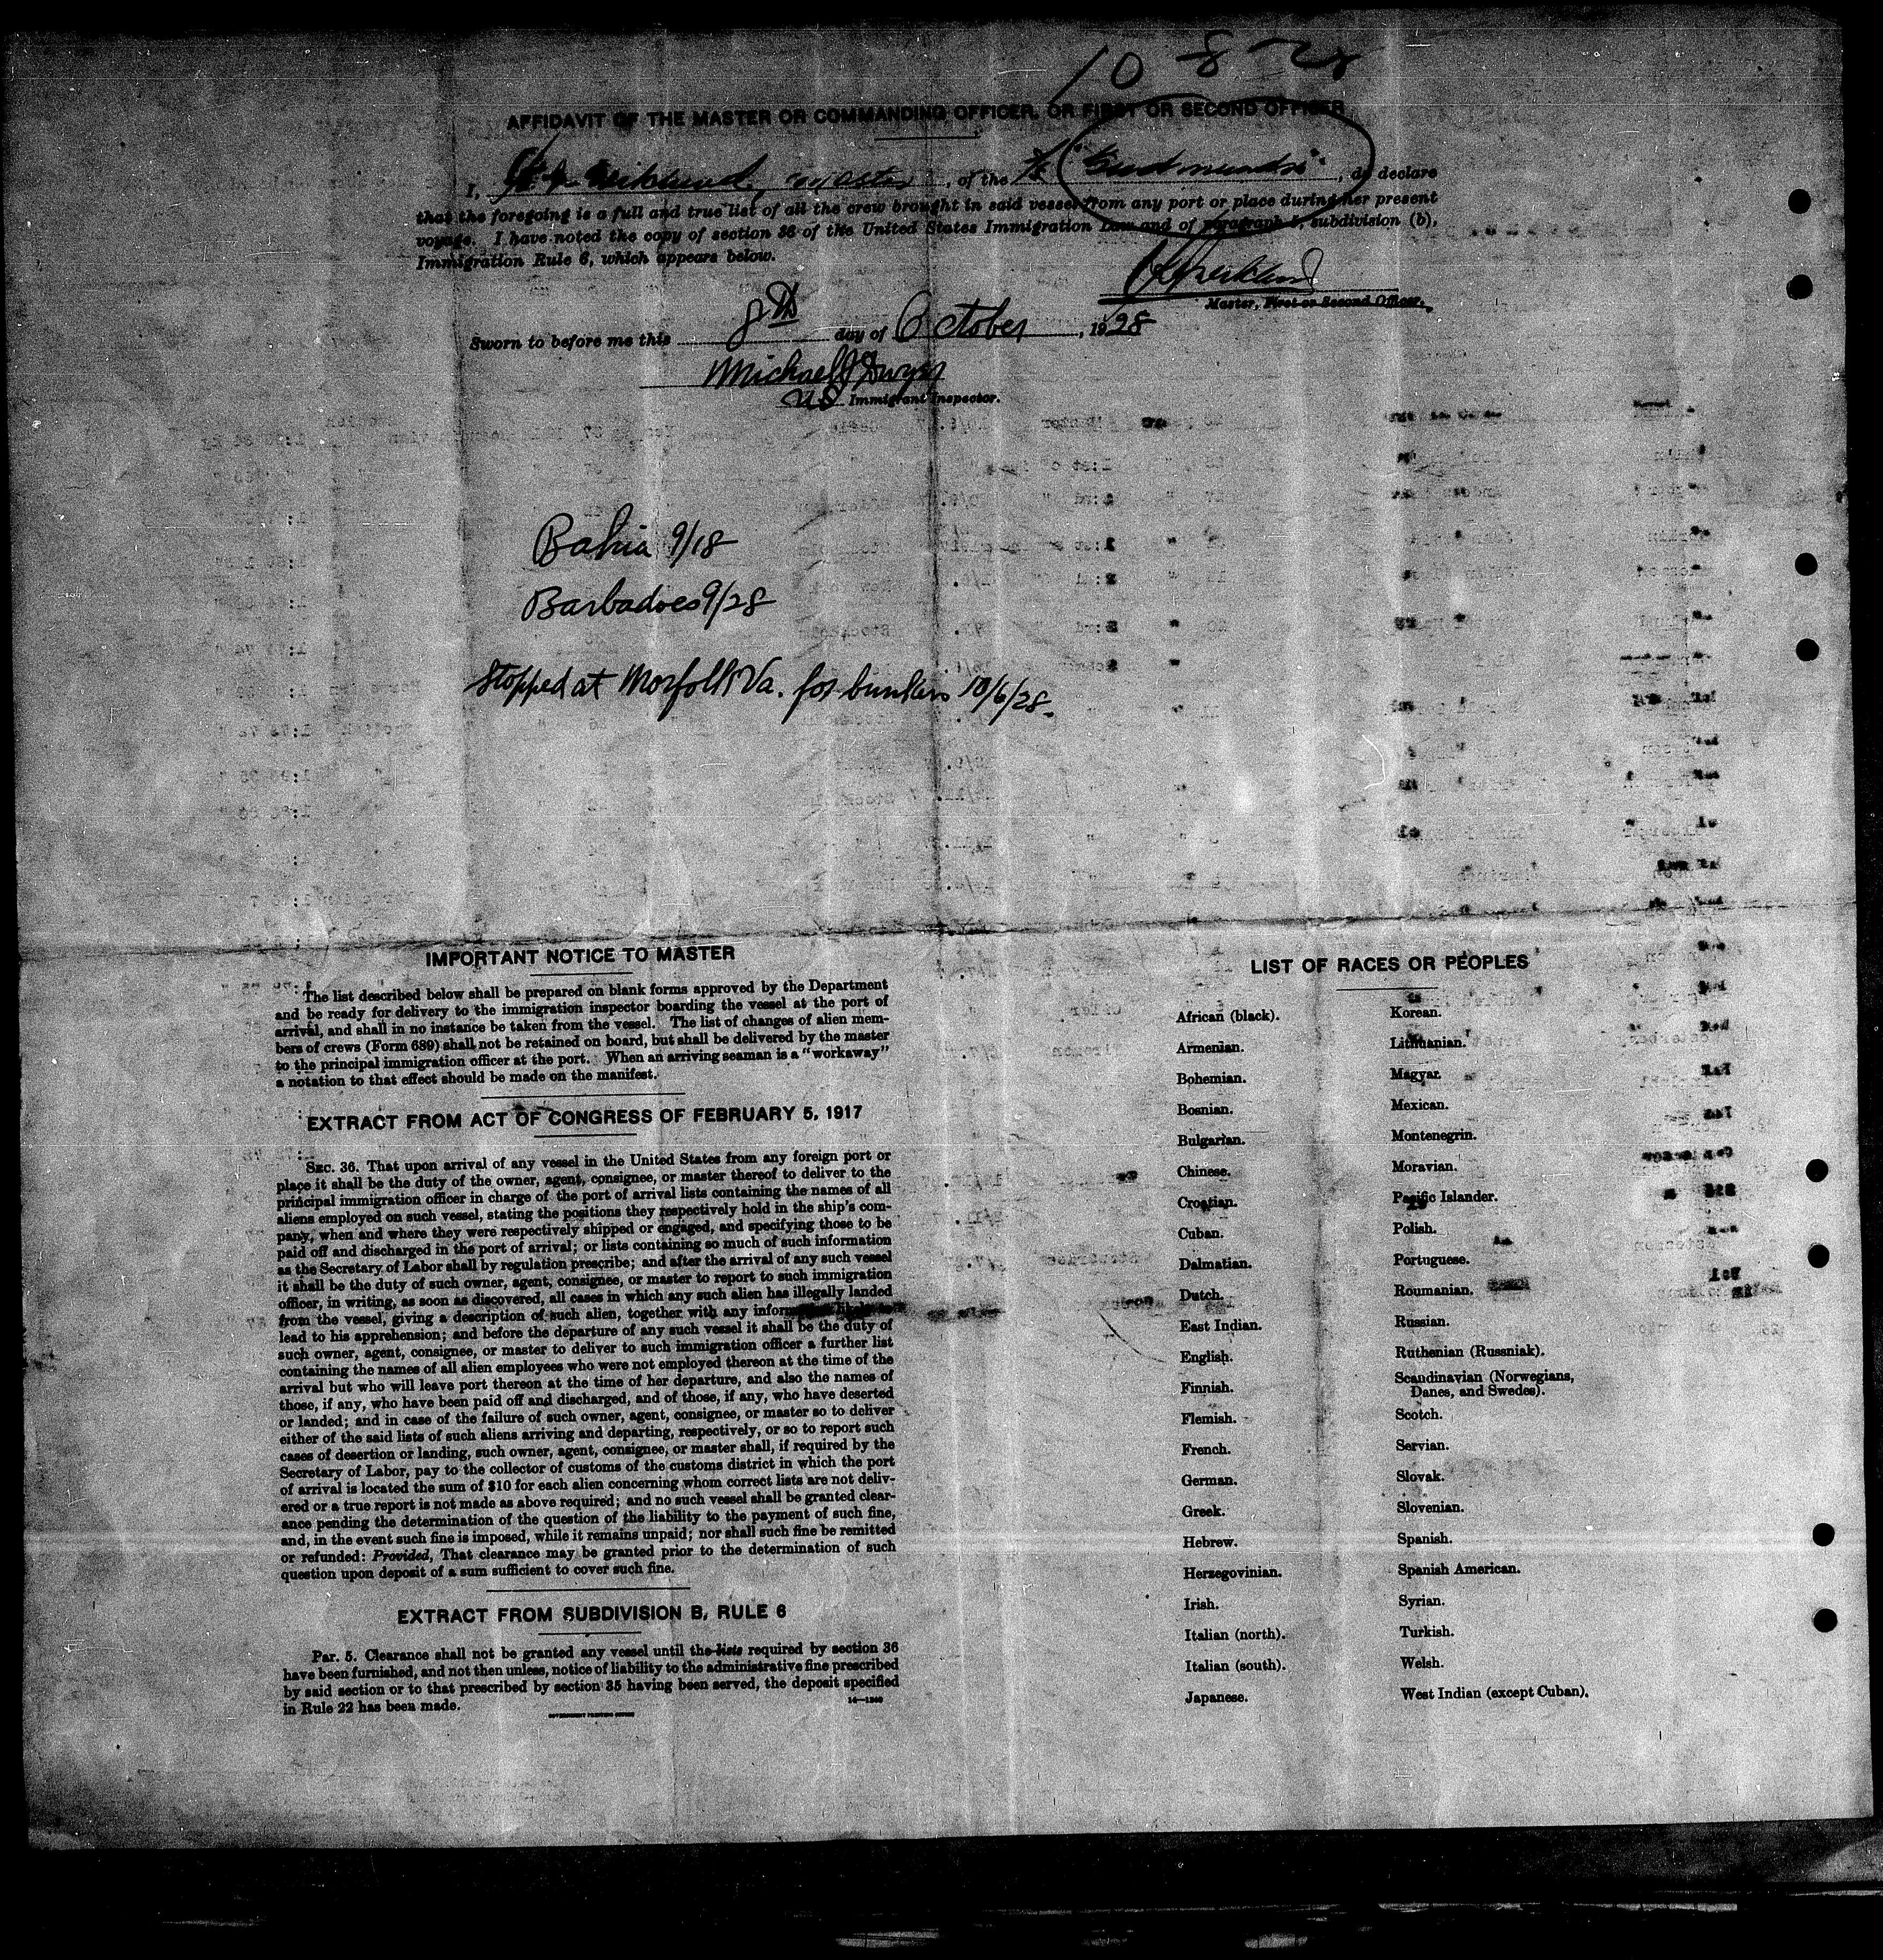 10-8-28
AFFIDAVIT OF THE MASTER OR COMMANDING OFFICER, OR FIRST OR SECOND OFFICER
I, master, of the do declare
that the foregoing is a full and true list of all the crew brought in said vessel from any port or place during her present
voyage. I have noted the copy of section 36 of the United States Immigration Law and of paragraph 5, subdivision (b),
Immigration Rule 6, which appears below.
Master, First or Second Officer.
Sworn to before me this 8th day of October, 1928
Michael J Dwyer
US Immigrant Inspector.
Bahia 9/18
Barbadoes 9/28
Stopped at Norfolk Va. for bunkers 10/6/28.
IMPORTANT NOTICE TO MASTER
The list described below shall be prepared on blank forms approved by the Department
and be ready for delivery to the immigration inspector boarding the vessel at the port of
arrival, and shall in no instance be taken from the vessel. The list of changes of alien mem-
bers of crews (Form 689) shall not be retained on board, but shall be delivered by the master
to the principal immigration officer at the port. When an arriving seaman is a "workaway"
a notation to that effect should be made on the manifest.
EXTRACT FROM ACT OF CONGRESS OF FEBRUARY 5, 1917
SEC. 36. That upon arrival of any vessel in the United States from any foreign port or
place it shall be the duty of the owner, agent, consignee, or master thereof to deliver to the
principal immigration officer in charge of the port of arrival lists containing the names of all
aliens employed on such vessel, stating the positions they respectively hold in the ship's com-
pany, when and where they were respectively shipped or engaged, and specifying those to be
paid off and discharged in the port of arrival; or lists containing so much of such information
as the Secretary of Labor shall by regulation prescribe; and after the arrival of any such vessel
it shall be the duty of such owner, agent, consignee, or master to report to such immigration
officer, in writing, as soon as discovered, all cases in which any such alien has illegally landed
from the vessel, giving a description of such alien, together with any information likely to
lead to his apprehension; and before the departure of any such vessel it shall be the duty of
such owner, agent, consignee, or master to deliver to such immigration officer a further list
containing the names of all alien employees who were not employed thereon at the time of the
arrival but who will leave port thereon at the time of her departure, and also the names of
those, if any, who have been paid off and discharged, and of those, if any, who have deserted
or landed; and in case of the failure of such owner, agent, consignee, or master so to deliver
either of the said lists of such aliens arriving and departing, respectively, or so to report such
cases of desertion or landing, such owner, agent, consignee, or master shall, if required by the
Secretary of Labor, pay to the collector of customs of the customs district in which the port
of arrival is located the sum of $10 for each alien concerning whom correct lists are not deliv-
ered or a true report is not made as above required; and no such vessel shall be granted clear-
ance pending the determination of the question of the liability to the payment of such fine,
and, in the event such fine is imposed, while it remains unpaid; nor shall such fine be remitted
or refunded: Provided, That clearance may be granted prior to the determination of such
question upon deposit of a sum sufficient to cover such fine.
EXTRACT FROM SUBDIVISION B, RULE 6
Par. 5. Clearance shall not be granted any vessel until the lists required by section 36
have been furnished, and not then unless, notice of liability to the administrative fine prescribed
by said section or to that prescribed by section 35 having been served, the deposit specified
in Rule 22 has been made.
14—1240
GOVERNMENT PRINTING OFFICE
LIST OF RACES OR PEOPLES
African (black).
Armenian.
Bohemian.
Bosnian.
Bulgarian.
Chinese.
Croatian.
Cuban.
Dalmatian.
Dutch.
East Indian.
English.
Finnish.
Flemish.
French.
German.
Greek.
Hebrew.
Herzegovinian.
Irish.
Italian (north).
Italian (south).
Japanese.
Korean.
Lithuanian.
Magyar.
Mexican.
Montenegrin.
Moravian.
Pacific Islander.
Polish.
Portuguese.
Roumanian.
Russian.
Ruthenian (Russniak).
Scandinavian (Norwegians,
Danes, and Swedes).
Scotch.
Servian.
Slovak.
Slovenian.
Spanish.
Spanish American.
Syrian.
Turkish.
Welsh.
West Indian (except Cuban).